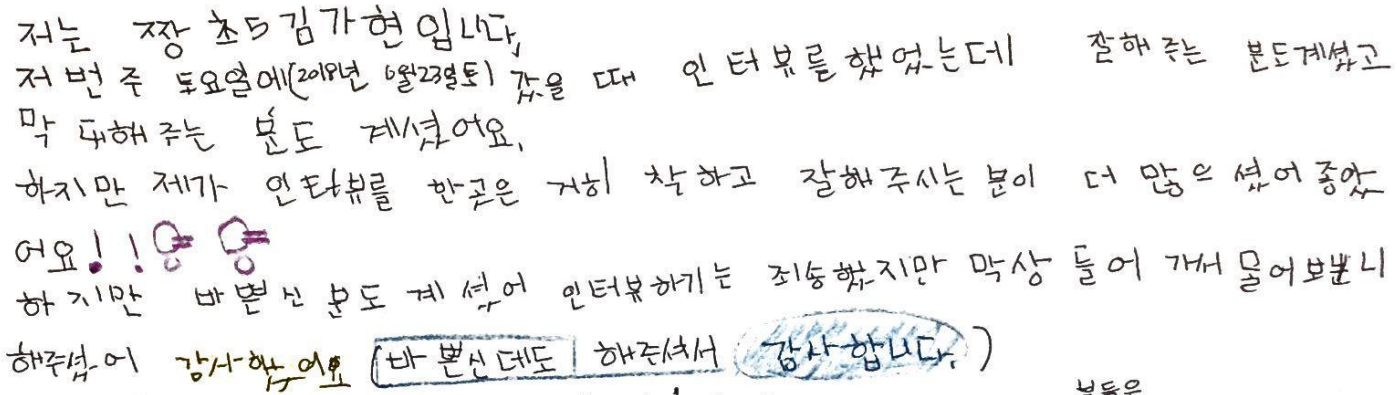 저는 짱 초5 김가현입니다,
저번주 토요일에(2018년 6월23일토) 갔을 때 인터뷰를 했었는데 잘해주는 분도계셨고
막 대해주는 분도 계셨어요.
하지만 제가 인터뷰를 한곳은 거히 착하고 잘해주시는 분이 더 많으셨어 좋았
어요!!
하지만 바쁜신 분도 계셨어 인터뷰하기는 죄송했지만 막상 들어가서 물어보분니
해주셨어 감사했어요 (바쁜신데도 해주셔서 감사합니다.)
분들은